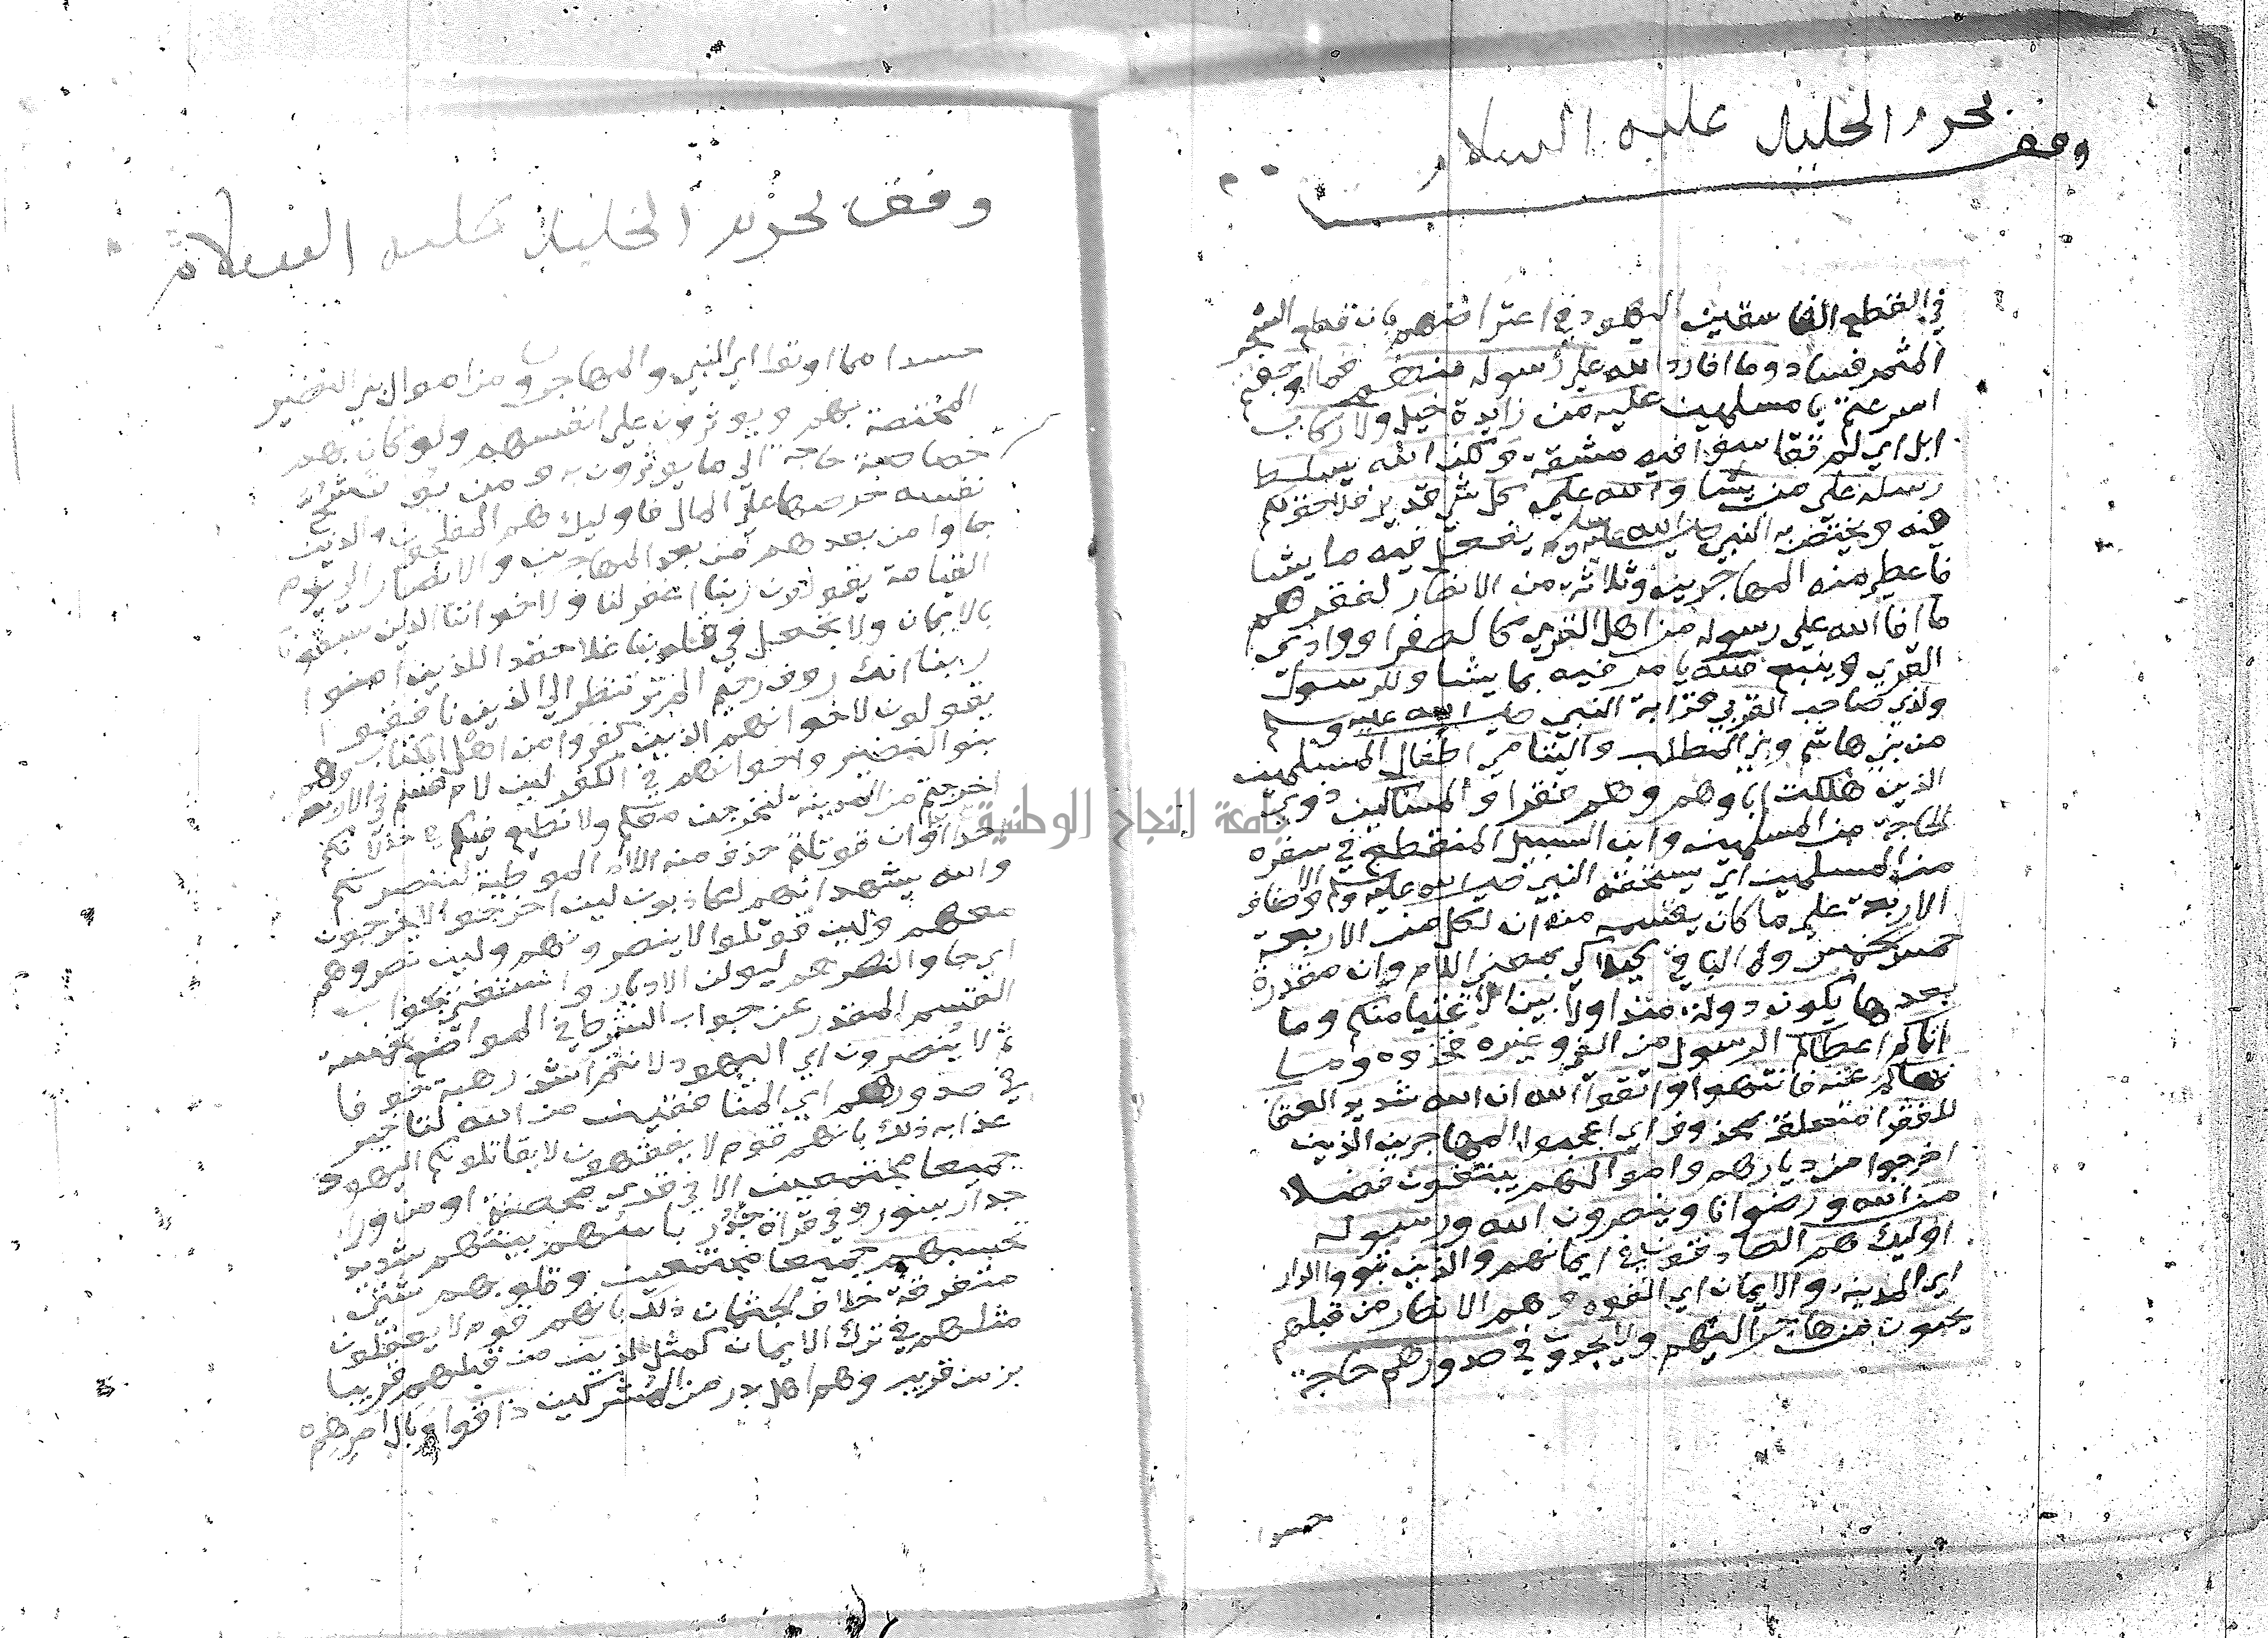 وقف بحرم الخليل عليه السلام
في القطع الفاسقين اليهود في اعتراضهم بان قطع الشجر
المثمر فساد وما افا رد الله على رسوله منهم فما اوجفتم
اسرعتم يا مسلمين عليه من زايدة خيل ولا ركاب
ابل اي لم تقاسوا فيه مشقة ولكن الله يسلط
رسله على من يشا والله على كل شي قدير فلا حق لكم
فيه ويختص به النبي صلى الله عليه وسلم يفعل فيه ما يشا
فاعطى منه المهاجرين وثلاثة من الانصار لفقرهم
ما افا الله على رسوله من اهل القرى كالصفرا ووادي
القرى وينبع فلله يامر فيه بما يشا وللرسول
ولذي صاحب القربى قرابة النبي صلى الله عليه وسلم
من بني هاشم وبني المطلب واليتامى اطفال المسلمين
الذين هلكت اباوهم وهم فقرا والمساكين ذوي
الحاجة من المسلمين وابن السبيل المنقطع في سفره
من المسلمين اي يستحقه النبي صلى الله عليه وسلم والاصناف
الاربعة على ما كان يقسمه من ان لكل من الاربعة
خمس الخمس وله الباقي كيلا كي بمعنى اللام وان مقدرة
بعدها يكون دولة متداولا بين الاغنيا منكم وما
اتاكم اعطاكم الرسول من الفي وغيره فخذوه وما
نهاكم عنه فانتهوا واتقوا الله ان الله شديد العقا
للفقرا متعلق بمحذوف اي اعجبوا المهاجرين الذين
اخرجوا من ديارهم واموالهم يبتغون فضلا
من الله ورضوانا وينصرون الله ورسوله
اوليك هم الصادقون في ايمانهم والذين تبووا الدار
اي المدينه والايمان اي الفوه وهم الانصار من قبلهم
يحبون من هاجر اليهم ولا يجدون في صدورهم حاجة
حسدا
وقف لحرم الخليل عليه السلام
حسدا مما اوتوا اي النبي والمهاجرون من اموال بني النضير
المختصة بهم ويوثرون على انفسهم ولو كان بهم
خصاصة حاجة الى ما يوثرون به ومن يوق شح
نفسه حرصها على المال فاوليك هم المفلحون والذين
جاوا من بعدهم من بعد المهاجرين والانصار الى يوم
القيامة يقولون ربنا اغفر لنا ولاخواننا الذين سبقونا
بالايمان ولا تجعل في قلوبنا غلا حقدا للذين امنوا
ربنا انك روف رحيم الم تر تنظر الى الذين نافقوا
يقولون لاخوانهم الذين كفروا من اهل الكتاب وهم
بنو النضير واخوانهم في الكفر لين لام قسم في الاربعة
اخرجتم من المدينة لنخرجن معكم ولا نطيع فيكم في خذلانكم
احدا وان قوتلتم حذف منه اللام الموطية لننصرنكم
والله يشهد انهم لكاذبون لين اخرجوا لا يخرجون
معهم ولين قوتلوا لا ينصرونهم ولين نصروهم
اي جاوا لنصرهم ليولن الادبار واستغني بجواب
القسم المقدر عن جواب الشرط في المواضع الخمسة
ثم لا ينصرون اي اليهود لانتم اشد رهبة خوفا
في صدورهم اي المنافقين من الله لتاخير
عذابه ذلك بانهم قوم لا يفقهون لا يقاتلونكم اليهود
جميعا مجتمعين الا في قرى محصنة او من ورا
جدار بسور وفي قراة جدر باسهم بينهم شديد
تحسبهم جميعا مجتمعين وقلوبهم شتى
متفرقة خلاف الحسبان ذلك بانهم قوم لا يعقلون
مثلهم في ترك الايمان كمثل الذين من قبلهم قريبا
بزمن قريب وهم اهل بدر من المشركين ذاقوا وبال امرهم
جامعة النجاح الوطنية